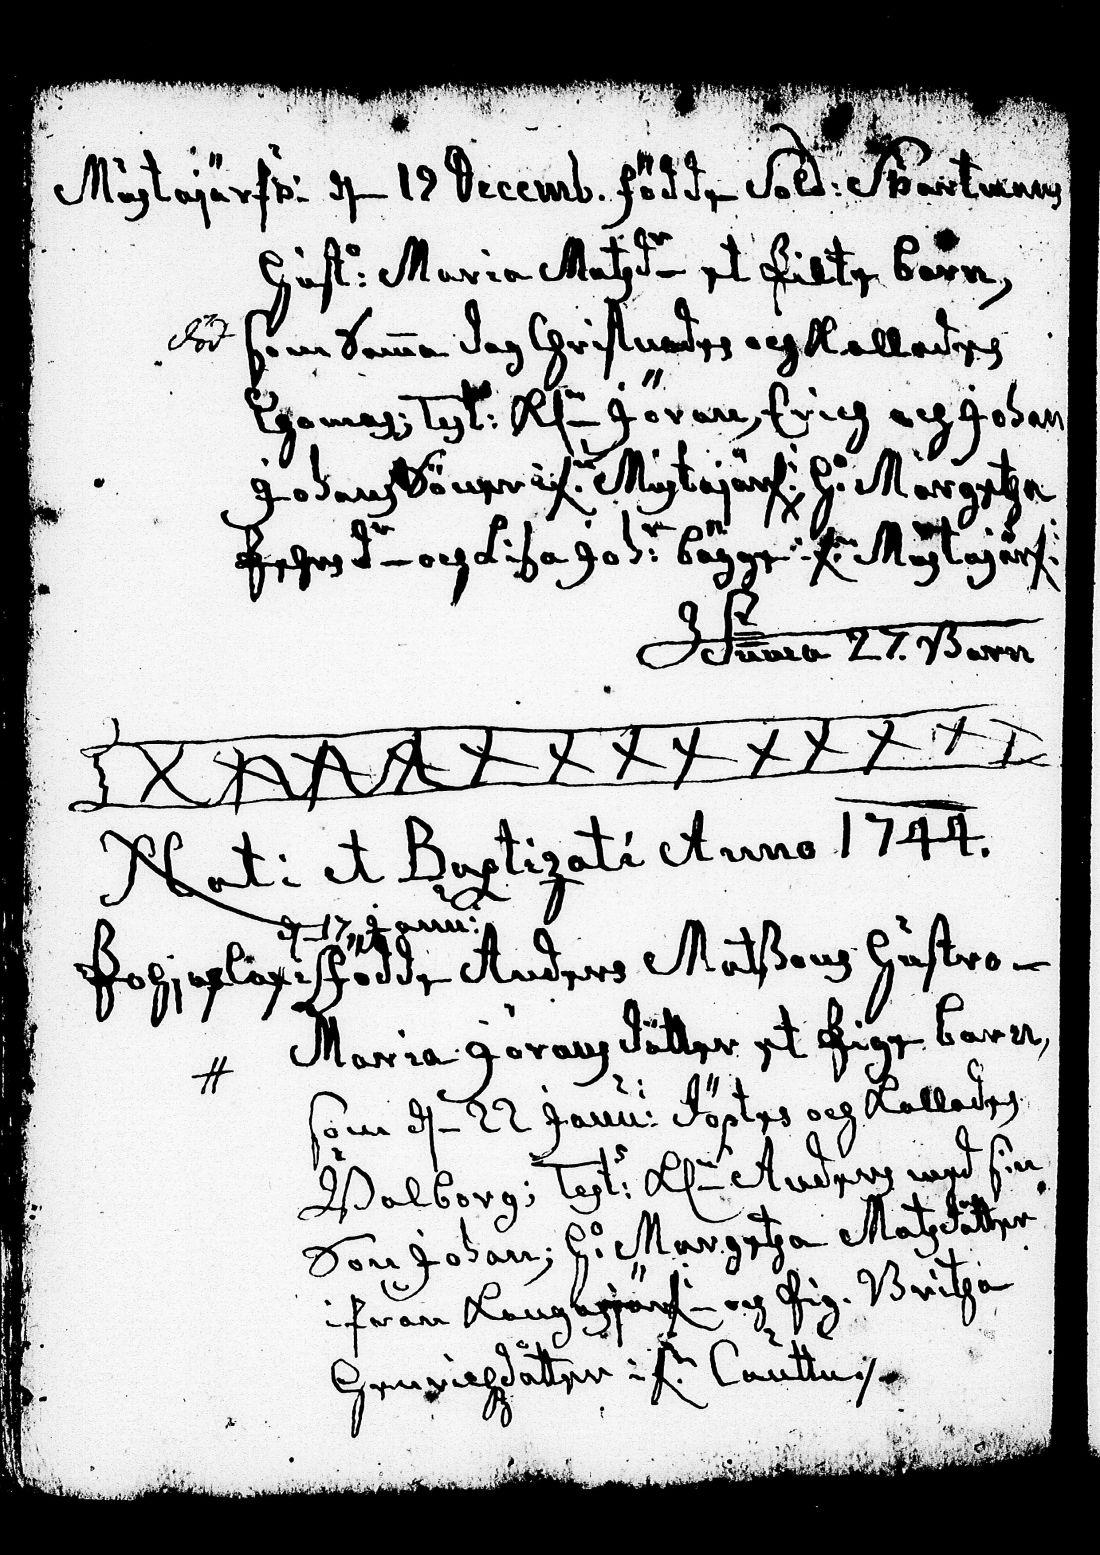 Mustajärfwi d. 19 Decemb. födde Sold: Skartmans
Hust°: Maria Matzdr et Pilte barn,
död som Samma dag Christnades och Kallades
Thomas; Test: Kln Jöran, Erich och Johan
Johans Söner if. Mustajärf: H° Margetha
Pehrs dr och Lisa Joh: bägge if. Mustajärf:
Suma 27. Barn
Nati et Baptizati Anno 1744.
d. 17. Janu:
Pohjaslaxi födde Anders Matßons Hustro
Maria Jörans dotter et Pige barn,
# som d. 22 Janu: döptes och Kallades
Walborg; Test: Kln Anders med sin
Son Johan; H° Margetha Matzdotter
ifrån Kangasjärf och Pig. Britha
Henrichsdotter if. Cauttu./